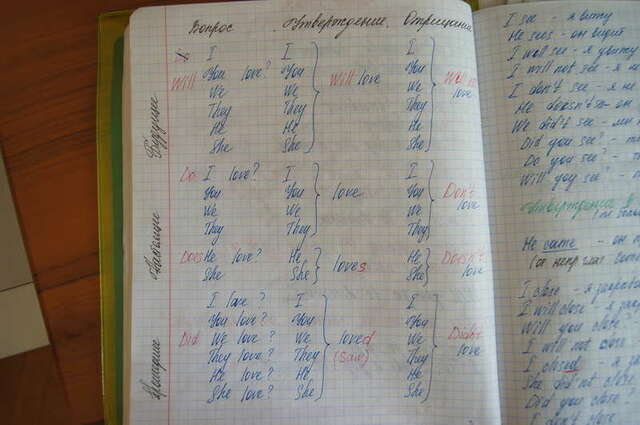 Вопрос Утверждение Отрицание
Будущее
I I I
Will You love? You Will love You Will not
We We We love
They They They
He He He
She She She
Настоящее
Do I love? I I
You You love You Don't
We We We love
They They They
Does He love? He He Doesn't
She She loves She love
Прошлое
I love? I I
You love? You You
Did We love? We loved We Didn't
They love? They (Saw) They love
He love? He He
She love? She She
I see - я вижу
He sees - он видит
I will see - я увижу
I will not see - я не
I don't see - я не
He doesn't see - он
We did see - мы
Did you see? -
Do you see? -
Will you see? -
Утверждение
He came - он
I close - я закрываю
I will close - я
Will you close?
I will not close
I closed - я
She did not close
Did you close?
I don't close